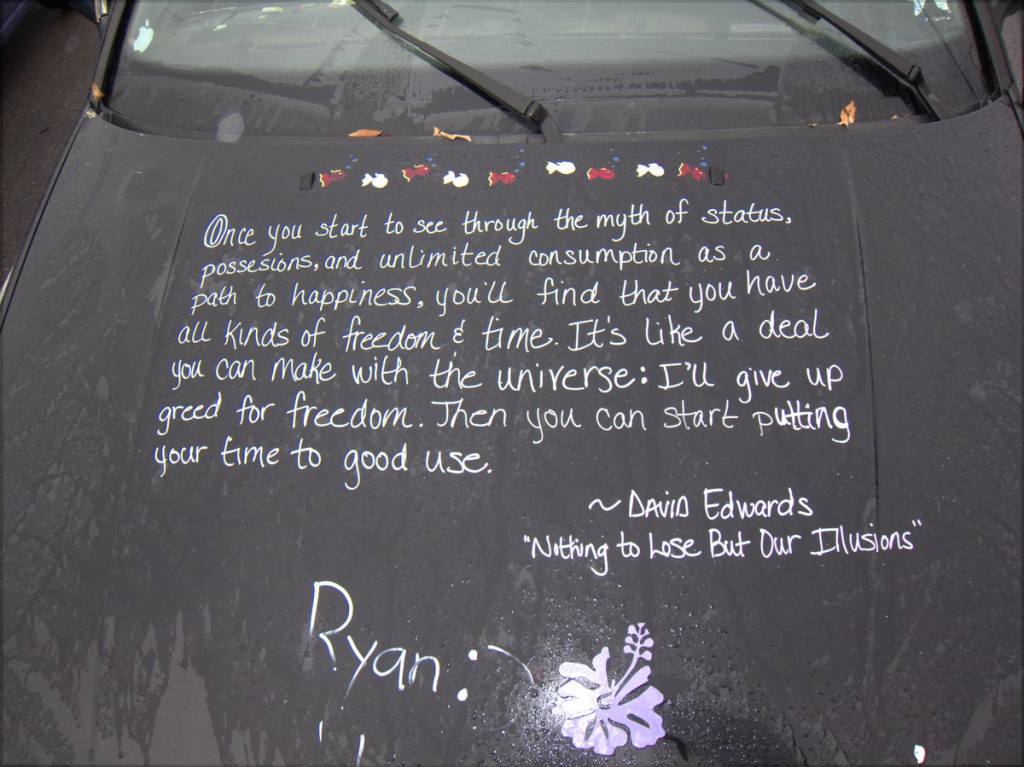 Once you start to see through the myth of status,
possesions, and unlimited consumption as a
path to happiness, you'll find that you have
all kinds of freedom & time. It's like a deal
you can make with the universe: I'll give up
greed for freedom. Then you can start putting
your time to good use.
~ David Edwards
"Nothing to Lose But Our Illusions"
Ryan :)